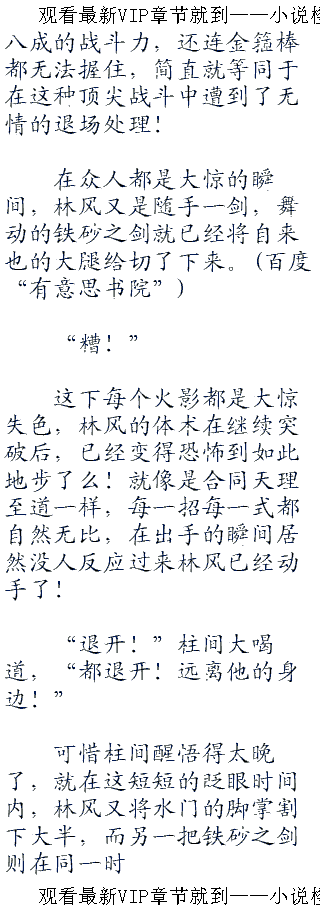 观看最新VIP章节就到——小说
八成的战斗力，还连金箍棒
都无法握住，简直就等同于
在这种顶尖战斗中遭到了无
情的退场处理！
在众人都是大惊的瞬
间，林风又是随手一剑，舞
动的铁砂之剑就已经将自来
也的大腿给切了下来。(百度
“有意思书院”)
“糟！”
这下每个火影都是大惊
失色，林风的体术在继续突
破后，已经变得恐怖到如此
地步了么！就像是合同天理
至道一样，每一招每一式都
自然无比，在出手的瞬间居
然没人反应过来林风已经动
手了！
“退开！”柱间大喝
道，“都退开！远离他的身
边！”
可惜柱间醒悟得太晚
了，就在这短短的眨眼时间
内，林风又将水门的脚掌割
下大半，而另一把铁砂之剑
则在同一时
观看最新VIP章节就到——小说